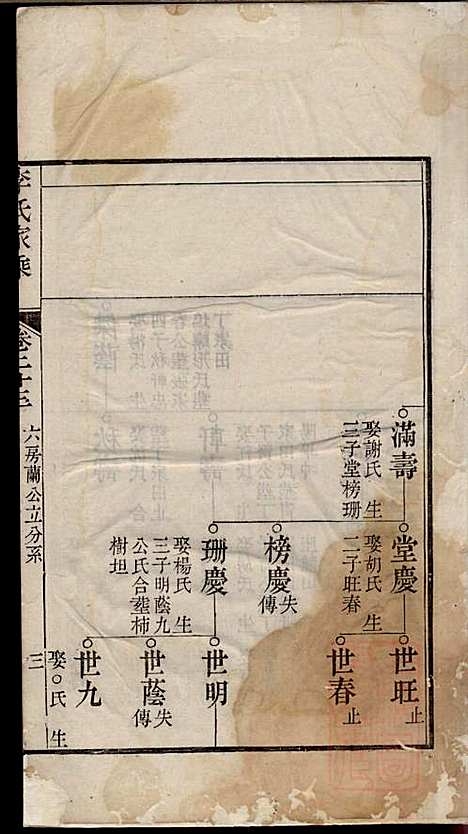 滿壽
娶謝氏 生
三子堂榜珊
堂慶
娶胡氏 生
二子旺春
榜慶
失傳
珊慶
娶楊氏 生
三子明蔭九
公氏合塟柿
樹坦
世旺
止
世春
止
世明
世蔭
失傳
世九
娶○氏 生
李氏家乘
卷二十三
六房蘭公立分系
三